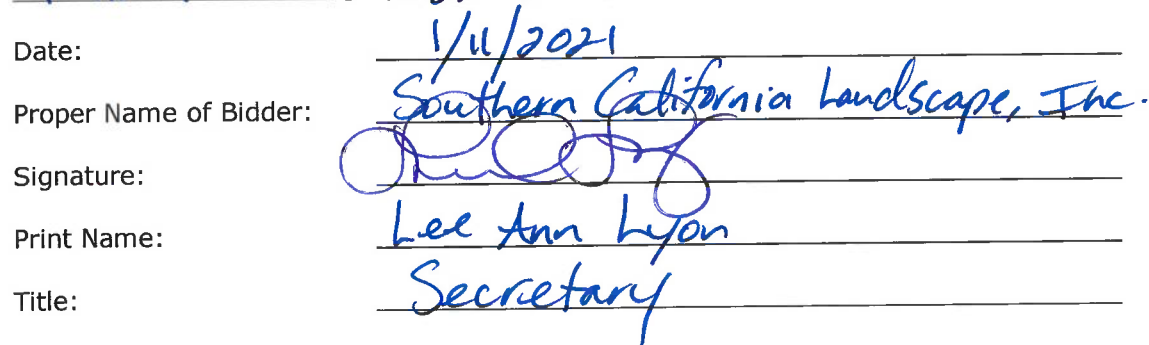 Date: 1/11/2021
Proper Name of Bidder: Southern California Landscape, Inc.
Signature:
Print Name: Lee Ann Lyon
Title: Secretary